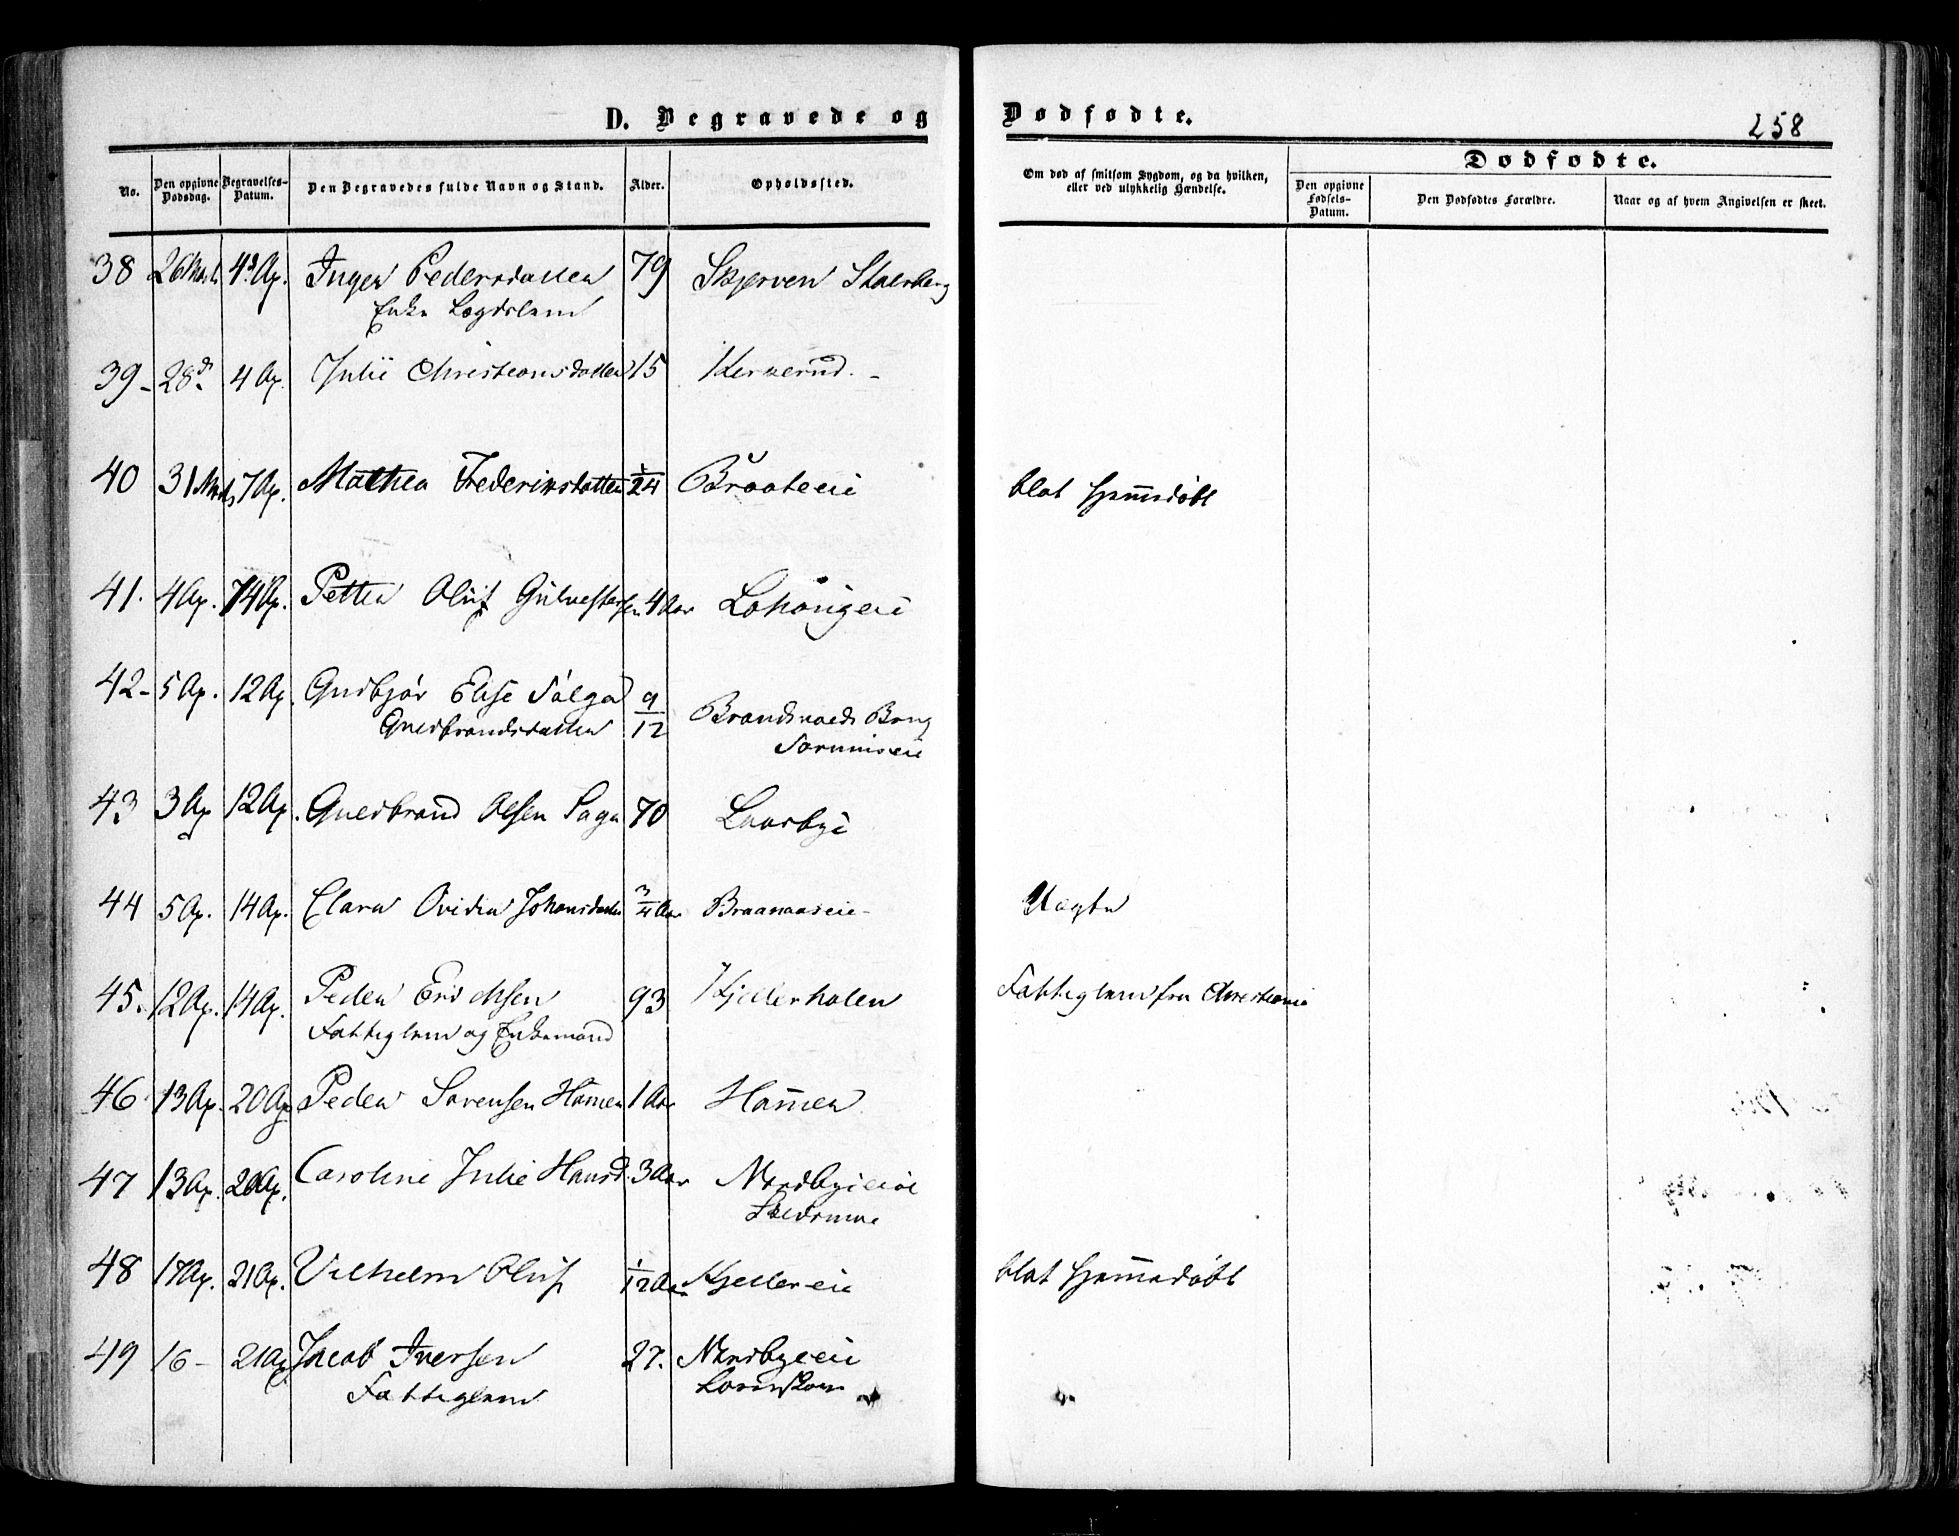 D. Begravede og Dødfødte.
258
No.
Den opgivne Dødsdag.
Begravelses-Datum.
Den Begravedes fulde Navn og Stand.
Alder.
Opholdssted.
Om død af smitsom Sygdom, og da hvilken, eller ved ulykkelig Hændelse.
Dødfødte.
Den opgivne Fødsels-Datum.
Den Dødfødtes Forældre.
Naar og af hvem Angivelsen er skeet.
38 26 Marts 4 Ap. Inger Pedersdatter 79 Skjerven
Enke Lægdslem
39 - 28 d. 4 Ap. Julie Christiansdatter 15
40 31 Marts 7 Ap. Mathea Frederiksdatter 1/24 Braateeie blot Hjemmedøbt
41. 4 Ap. 14 Ap. Petter Oluf Gulvestersen 4 Aar
42 - 5 Ap. 12 Ap. Gudbjør Elise Sølga 9/12
Gulbrandsdatter
43 3 Ap 12 Ap. Gulbrand Olsen Saga 70 Laasbye
44 5 Ap. 14 Ap. Clara Ovidia Johansdatter 3/4 Aar Braanaaseie - Uægte
45. 12 Ap. 14 Ap. Peder Erichsen 93 Kjellerholen Fattiglem fra Christiania
Fattiglem og Enkemand
46 13 Ap. 20 Ap. Peder Sørensen Hammer 1 Aar Hammer
47 13 Ap. 20 Ap. Caroline Julie Hansd. 3 Aar Nordbyeeie
Skedsmoe
48 17 Ap. 21 Ap. Vilhelm Oluf 1/12 Aar Kjellereie blot Hjemmedøbt
49 16 - 21 Ap Jacob Iversen 27. Nordbyeeie
Fattiglem Lørenskoug